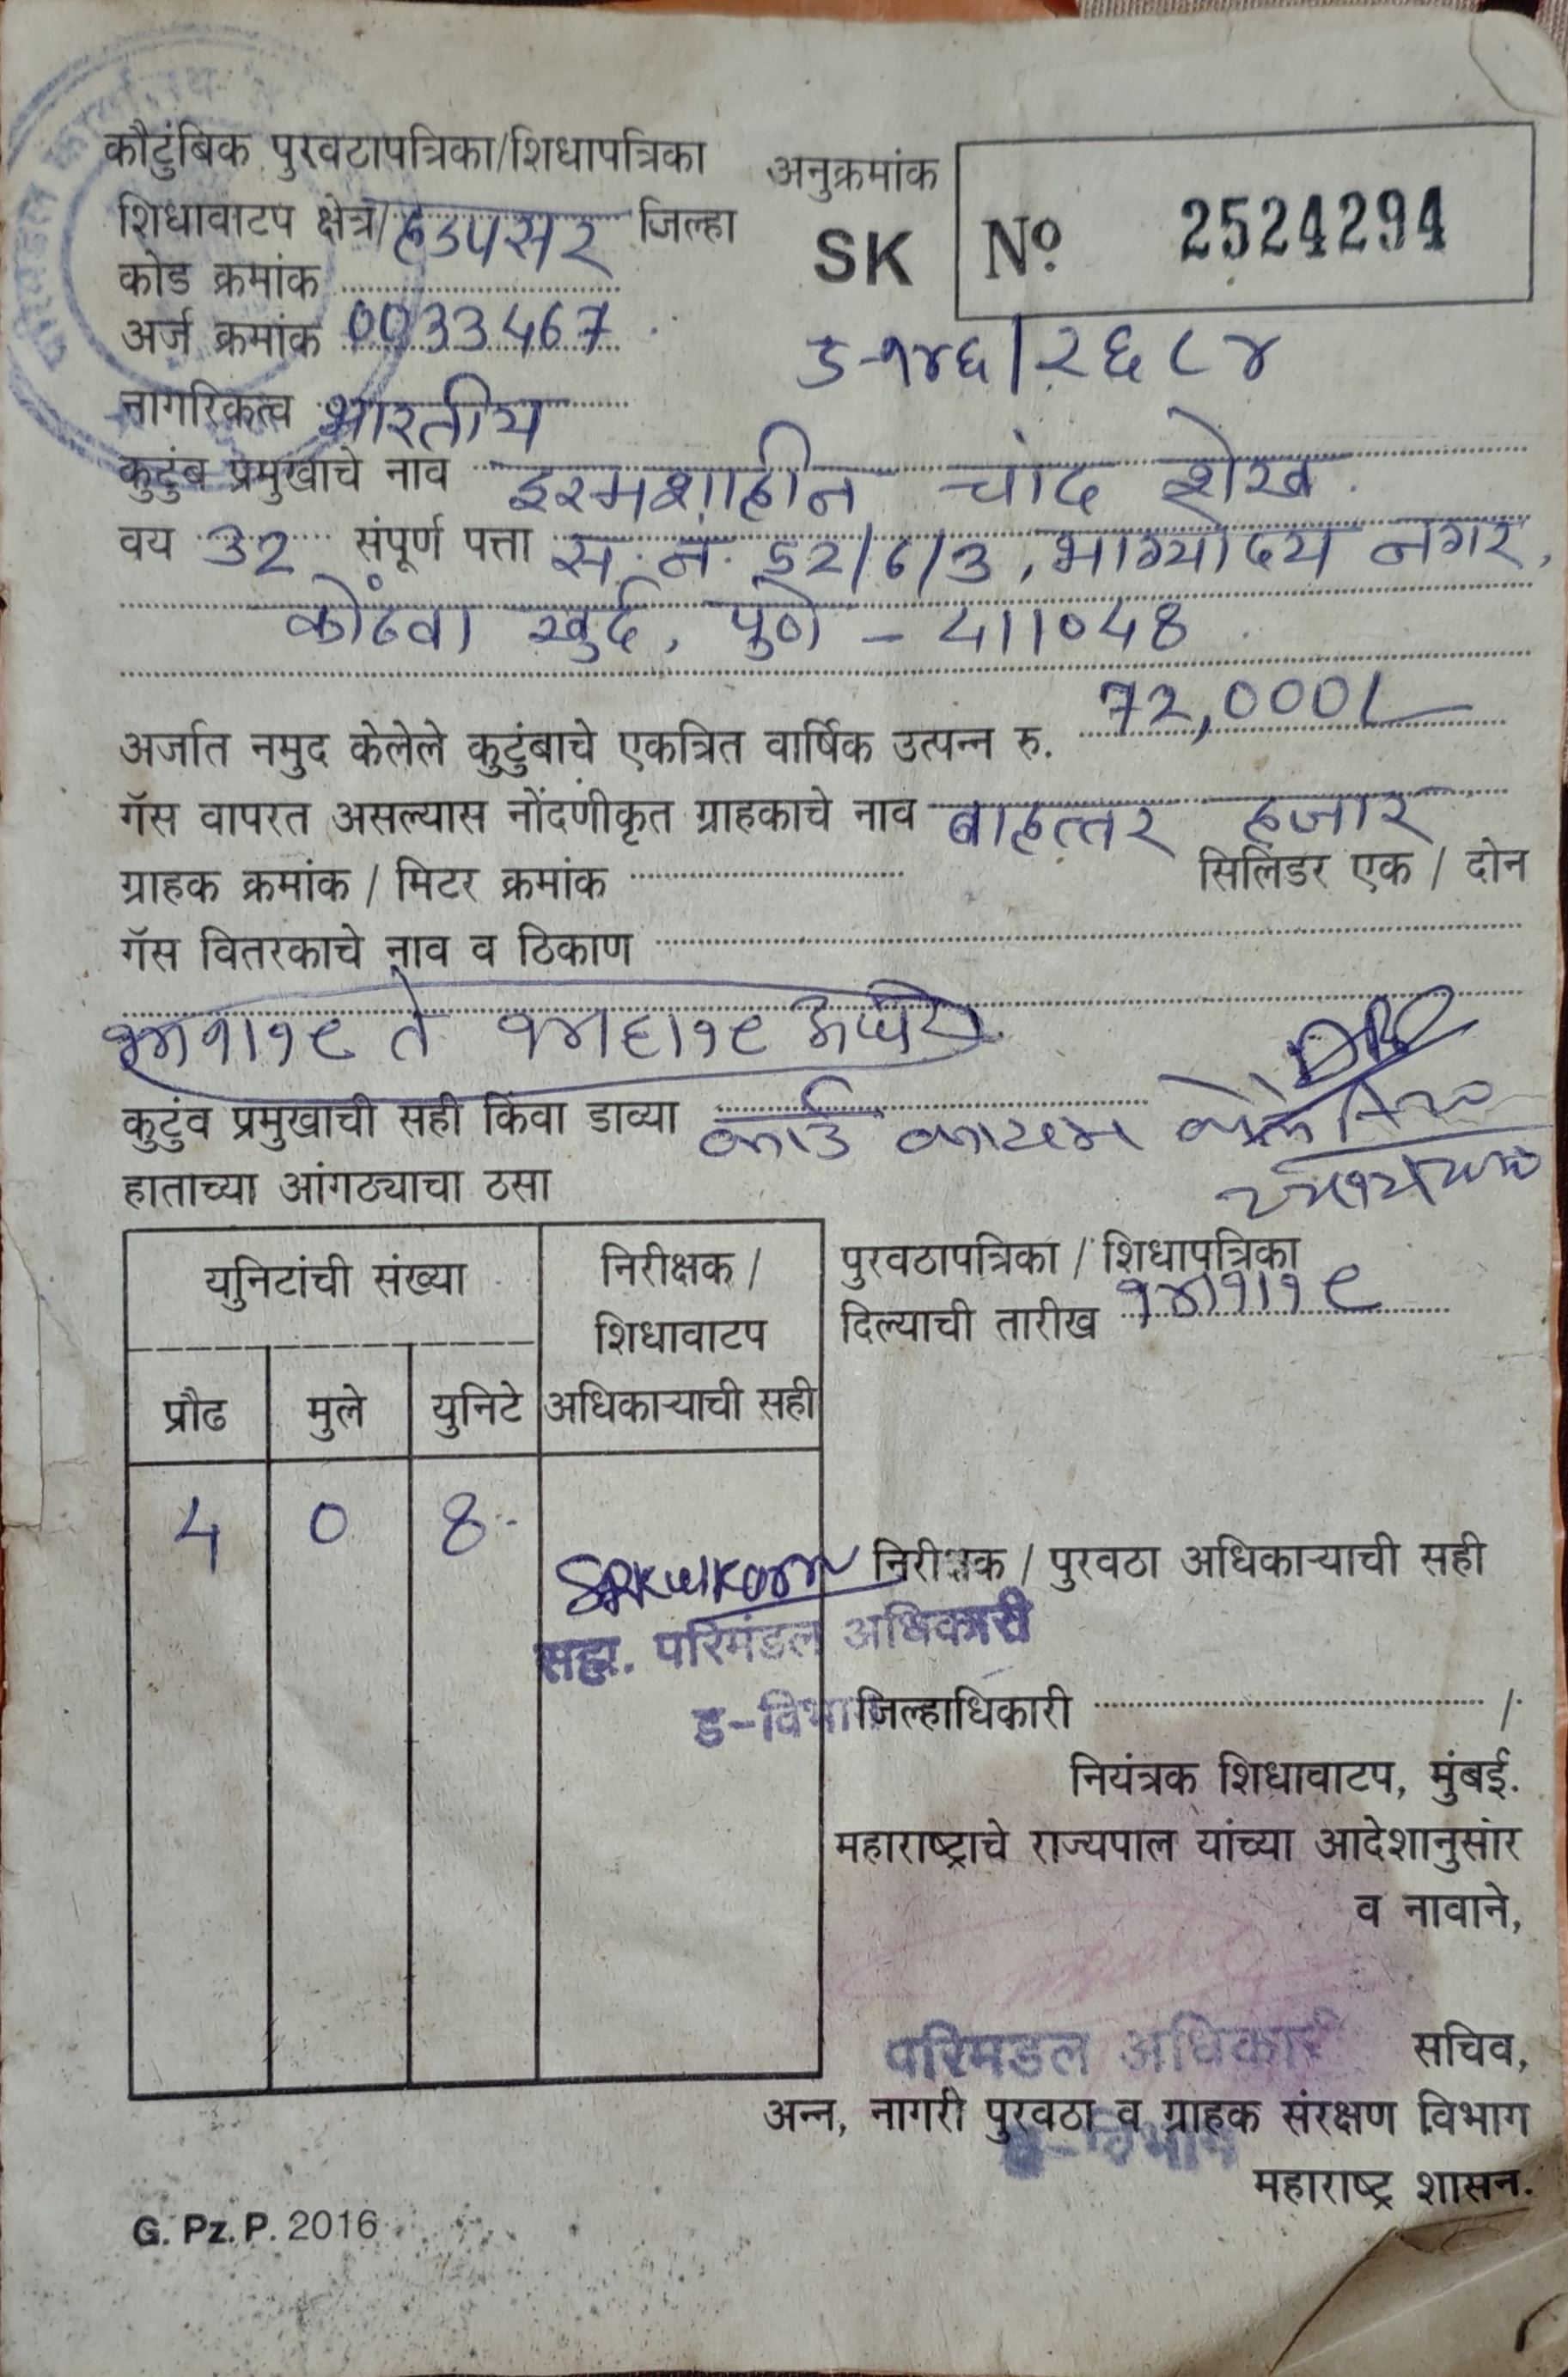 कौटुंबिक पुरवठापत्रिका/शिधापत्रिका
अनुक्रमांक
SK No 2524294
शिधावाटप क्षेत्र/ हडपसर जिल्हा
कोड क्रमांक
अर्ज क्रमांक 0033467
ड-१४६/२६८४
नागरिकत्व भारतीय
कुटुंब प्रमुखाचे नाव इरमशाहीन चांद शेख
वय 32 संपूर्ण पत्ता स. नं. 52/6/3, भाग्योदय नगर,
कोंढवा खुर्द, पुणे - 411048
72,000/-
अर्जात नमुद केलेले कुटुंबाचे एकत्रित वार्षिक उत्पन्न रु.
गॅस वापरत असल्यास नोंदणीकृत ग्राहकाचे नाव बाहत्तर हजार
ग्राहक क्रमांक / मिटर क्रमांक सिलिंडर एक / दोन
गॅस वितरकाचे नाव व ठिकाण
१४/१/१९ ते १४/६/१९
कुटुंब प्रमुखाची सही किंवा डाव्या कार्ड कायम
हाताच्या आंगठ्याचा ठसा
युनिटांची संख्या
निरीक्षक /
शिधावाटप
अधिकाऱ्याची सही
प्रौढ मुले युनिटे
4 0 8
पुरवठापत्रिका / शिधापत्रिका
दिल्याची तारीख १४/१/१९
निरीक्षक / पुरवठा अधिकाऱ्याची सही
सहा. परिमंडल अधिकारी
ड-विभाग
जिल्हाधिकारी /
नियंत्रक शिधावाटप, मुंबई.
महाराष्ट्राचे राज्यपाल यांच्या आदेशानुसार
व नावाने,
परिमडल अधिकारी
सचिव,
अन्न, नागरी पुरवठा व ग्राहक संरक्षण विभाग
महाराष्ट्र शासन.
G. Pz. P. 2016